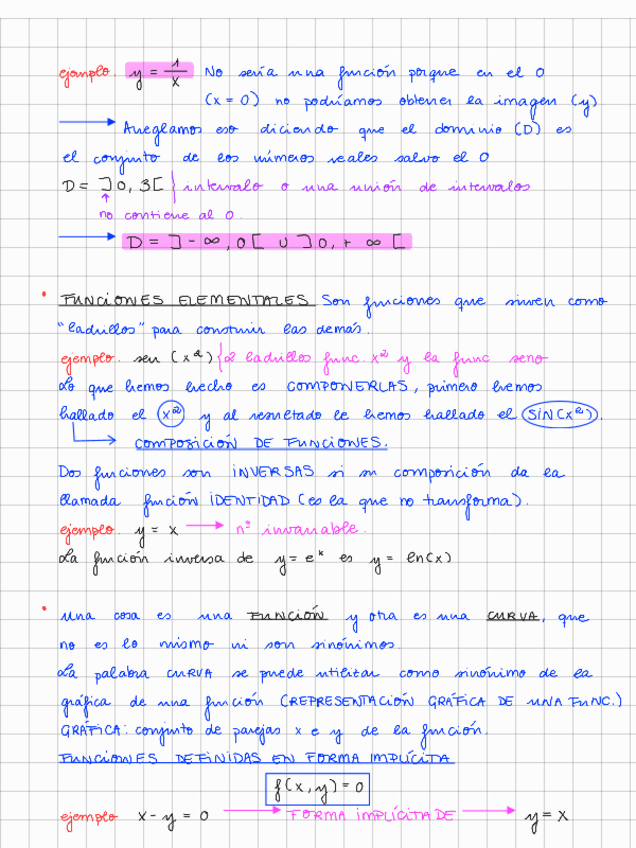 ejemplo. y = 1/x No sería una función porque en el 0
(x = 0) no podríamos obtener la imagen (y)
Arreglamos eso diciendo que el dominio (D) es
el conjunto de los números reales salvo el 0
D = ]0, 3[ } intervalo o una unión de intervalos
no contiene al 0.
D = ]-∞, 0[ ∪ ]0, +∞[
• FUNCIONES ELEMENTALES. Son funciones que sirven como
"ladrillos" para construir las demás.
ejemplo. sen (x²) { 2 ladrillos func. x² y la func seno
Lo que hemos hecho es COMPONERLAS, primero hemos
hallado el x² y al resultado le hemos hallado el SIN(x²).
COMPOSICIÓN DE FUNCIONES.
Dos funciones son INVERSAS si su composición da la
llamada función IDENTIDAD (es la que no transforma).
ejemplo. y = x → nº invariable.
La función inversa de y = eˣ es y = ln(x)
• Una cosa es una FUNCIÓN y otra es una CURVA, que
no es lo mismo ni son sinónimos.
La palabra CURVA se puede utilizar como sinónimo de la
gráfica de una función (REPRESENTACIÓN GRÁFICA DE UNA FUNC.)
GRÁFICA: conjunto de parejas x e y de la función.
FUNCIONES DEFINIDAS EN FORMA IMPLÍCITA
f(x, y) = 0
ejemplo x - y = 0 → FORMA IMPLÍCITA DE → y = x